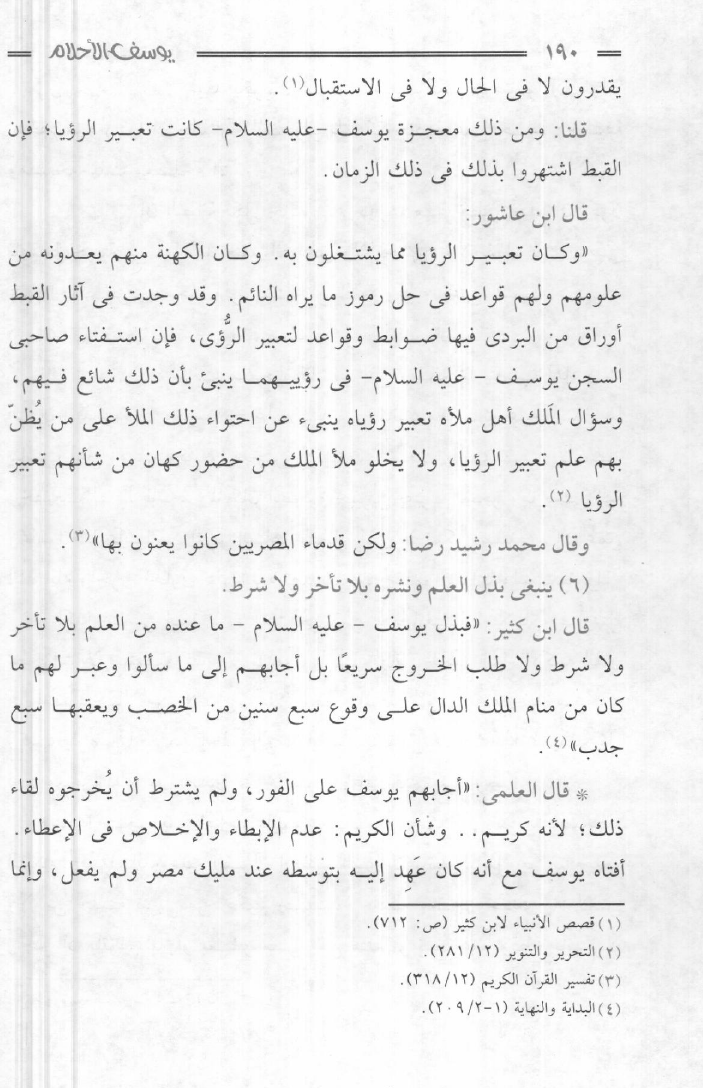 ١٩٠ يوسف الأحلام
يقدرون لا فى الحال ولا فى الاستقبال(١).
قلنا: ومن ذلك معجزة يوسف -عليه السلام- كانت تعبير الرؤيا؛ فإن
القبط اشتهروا بذلك فى ذلك الزمان.
قال ابن عاشور:
«وكان تعبير الرؤيا مما يشتغلون به. وكان الكهنة منهم يعدونه من
علومهم ولهم قواعد فى حل رموز ما يراه النائم. وقد وجدت فى آثار القبط
أوراق من البردى فيها ضوابط وقواعد لتعبير الرُّؤى، فإن استفتاء صاحبى
السجن يوسف - عليه السلام- فى رؤييهما ينبئ بأن ذلك شائع فيهم،
وسؤال المَلك أهل ملأه تعبير رؤياه ينبىء عن احتواء ذلك الملأ على من يُظنّ
بهم علم تعبير الرؤيا، ولا يخلو ملأ الملك من حضور كهان من شأنهم تعبير
الرؤيا (٢).
وقال محمد رشيد رضا: ولكن قدماء المصريين كانوا يعنون بها»(٣).
(٦) ينبغى بذل العلم ونشره بلا تأخر ولا شرط.
قال ابن كثير: «فبذل يوسف - عليه السلام - ما عنده من العلم بلا تأخر
ولا شرط ولا طلب الخروج سريعًا بل أجابهم إلى ما سألوا وعبر لهم ما
كان من منام الملك الدال على وقوع سبع سنين من الخصب ويعقبها سبع
جدب»(٤).
* قال العلمى: «أجابهم يوسف على الفور، ولم يشترط أن يُخرجوه لقاء
ذلك؛ لأنه كريم.. وشأن الكريم: عدم الإبطاء والإخلاص فى الإعطاء.
أفتاه يوسف مع أنه كان عَهِد إليه بتوسطه عند مليك مصر ولم يفعل، وإنما
(١) قصص الأنبياء لابن كثير (ص: ٧١٢).
(٢) التحرير والتنوير (٢٨١/١٢).
(٣) تفسير القرآن الكريم (٣١٨/١٢).
(٤) البداية والنهاية (١-٢٠٩/٢).